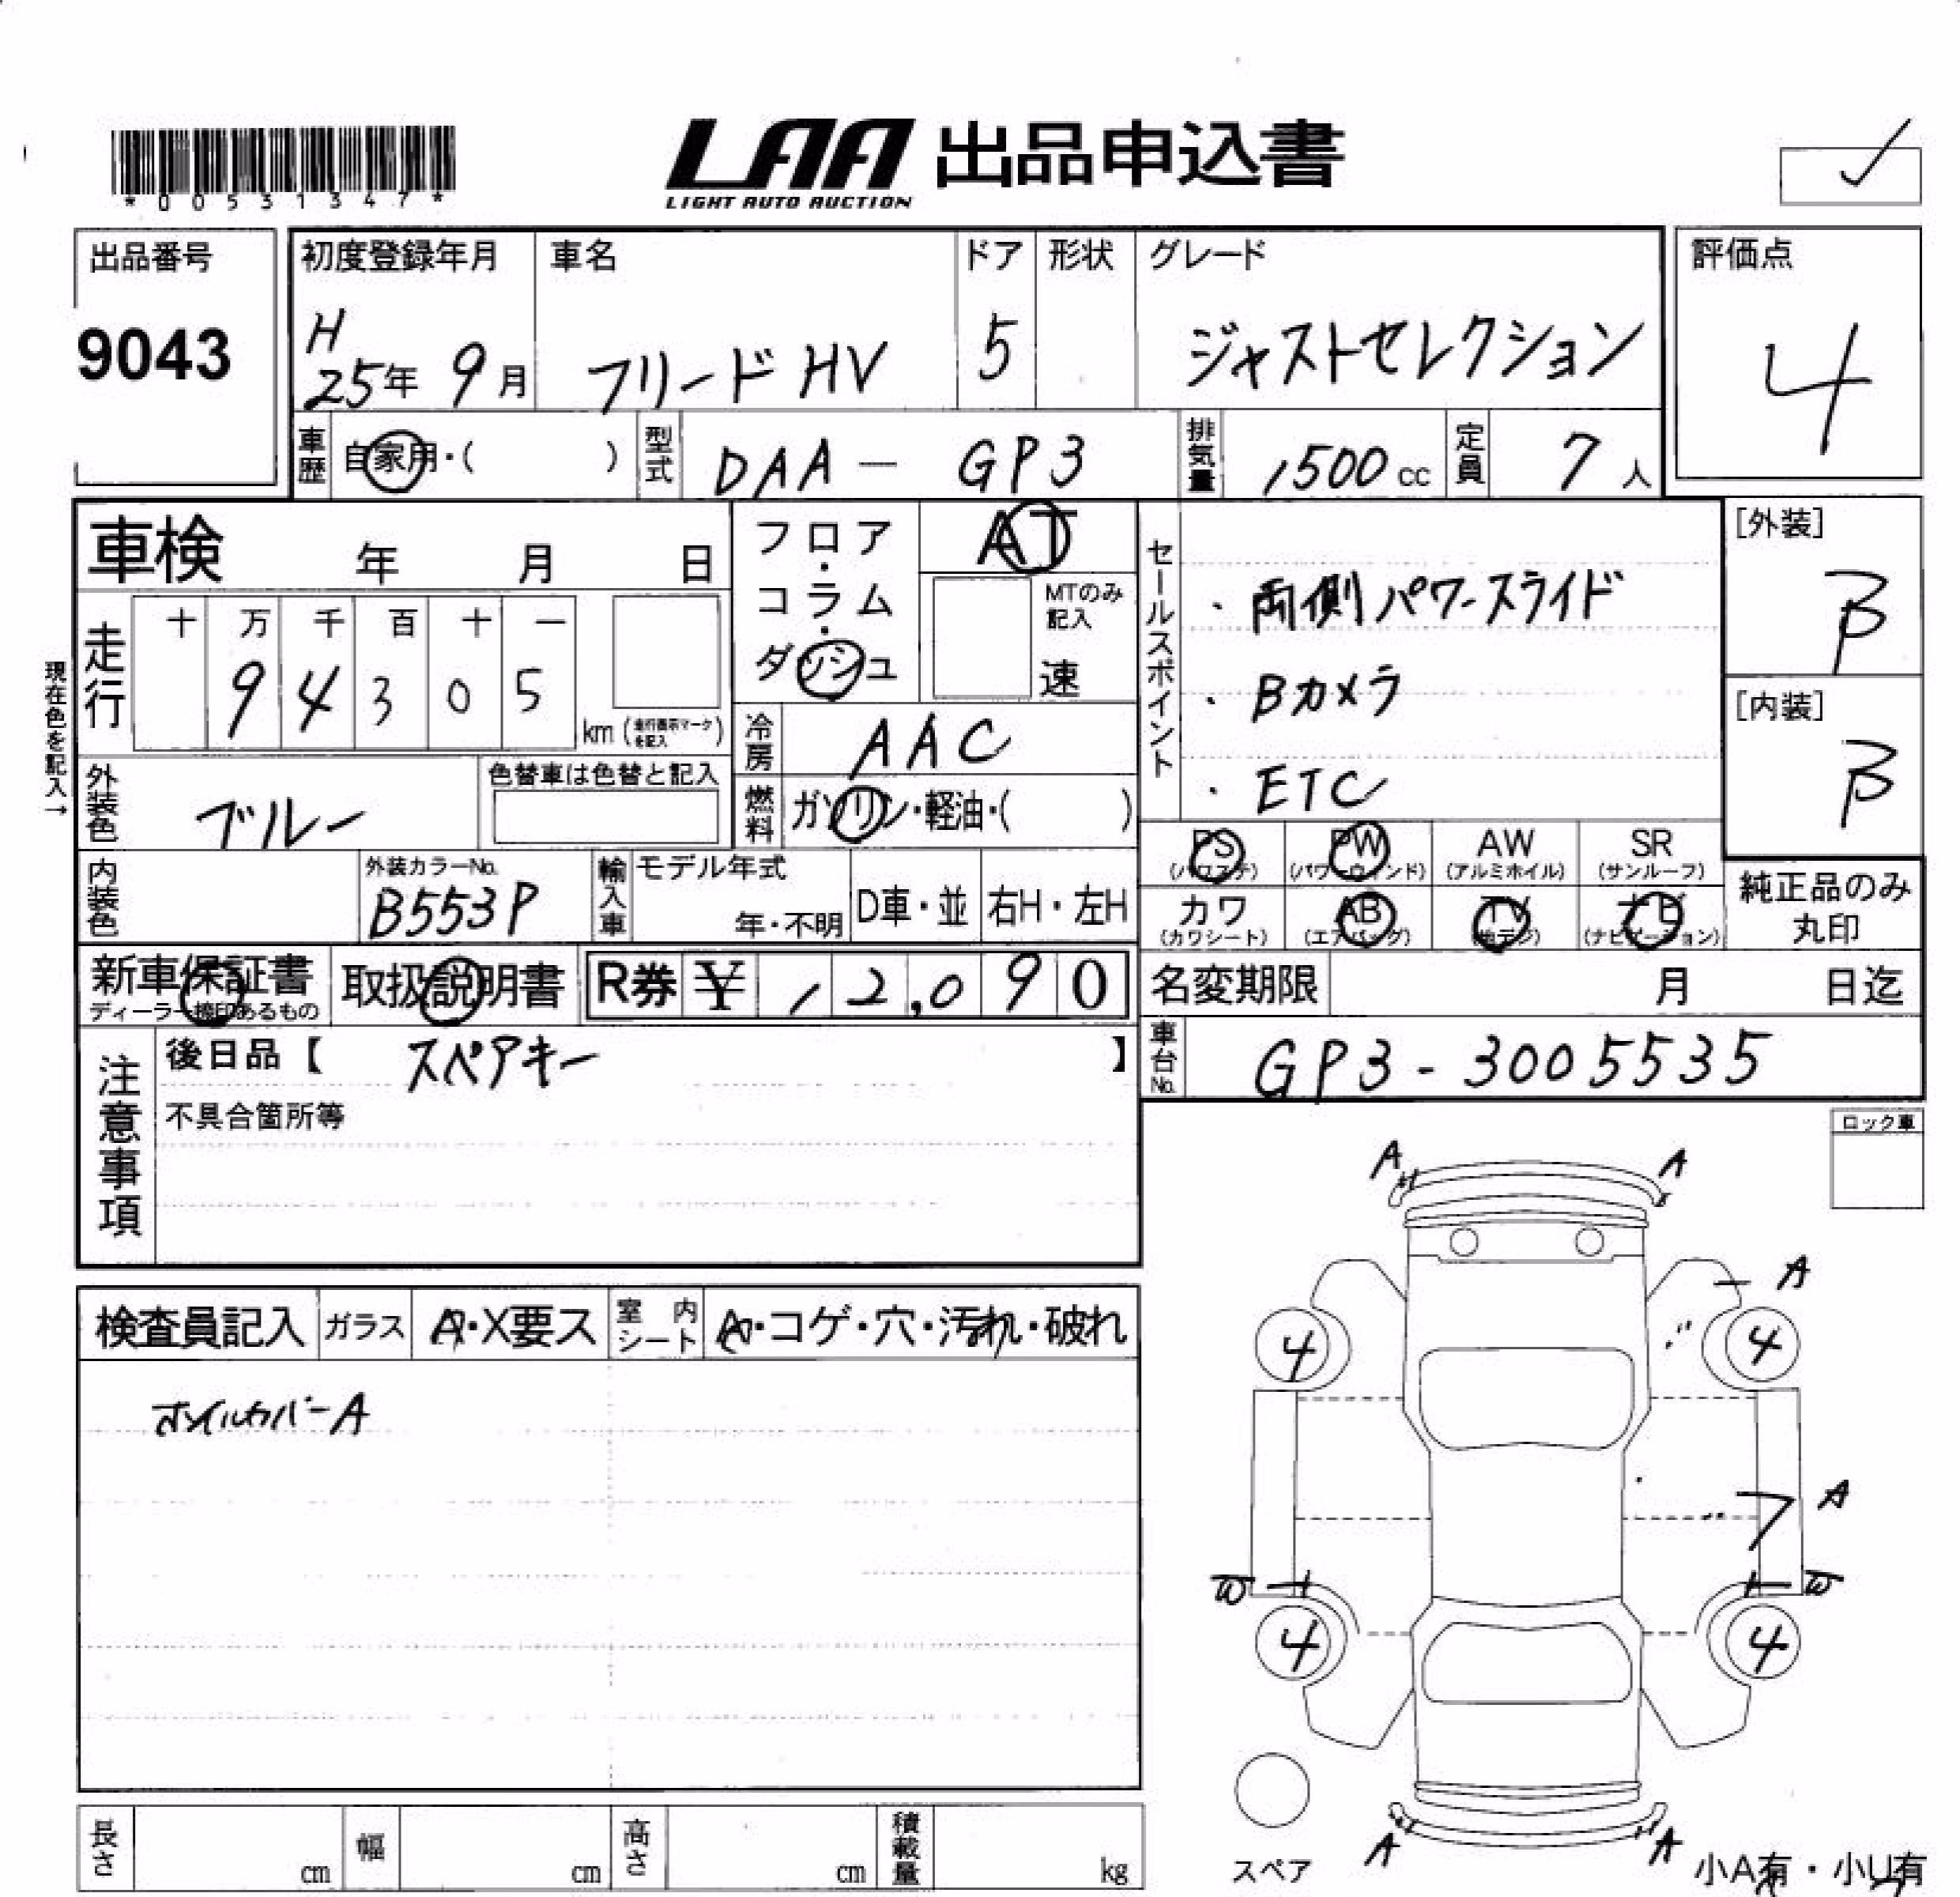 LAA 出品申込書
LIGHT AUTO AUCTION
*00531347*
出品番号
9043
初度登録年月
H
25年 9月
車名
フリード HV
ドア
5
形状
グレード
ジャストセレクション
評価点
4
車歴
自家用・( )
型式
DAA - GP3
排気量
1500 cc
定員
7 人
車検 年 月 日
現在色を記入→
走行
十 万 千 百 十 一
9 4 3 0 5
km (走行表示マークを記入)
フロア・コラム・ダッシュ
AT
MTのみ記入
速
冷房
AAC
燃料
ガソリン・軽油・( )
セールスポイント
・両側パワースライド
・Bカメラ
・ETC
[外装]
B
[内装]
B
外装色
ブルー
色替車は色替と記入
内装色
外装カラーNo.
B553P
輸入車
モデル年式
年・不明
D車・並
右H・左H
PS
(パワステ)
PW
(パワーウィンド)
AW
(アルミホイル)
SR
(サンルーフ)
カワ
(カワシート)
AB
(エアバッグ)
TV
(地デジ)
ナビ
(ナビゲーション)
純正品のみ
丸印
新車保証書
ディーラー捺印あるもの
取扱説明書
R券 ¥ 12,090
名変期限 月 日迄
車台No.
GP3-3005535
注意事項
後日品【 スペアキー 】
不具合箇所等
ロック車
検査員記入
ガラス
A・X要ス
室内シート
A・コゲ・穴・汚れ・破れ
ホイルカバーA
A A
A
4 4
A
W W
4 4
スペア
A A
小A有・小U有
長さ cm
幅 cm
高さ cm
積載量 kg